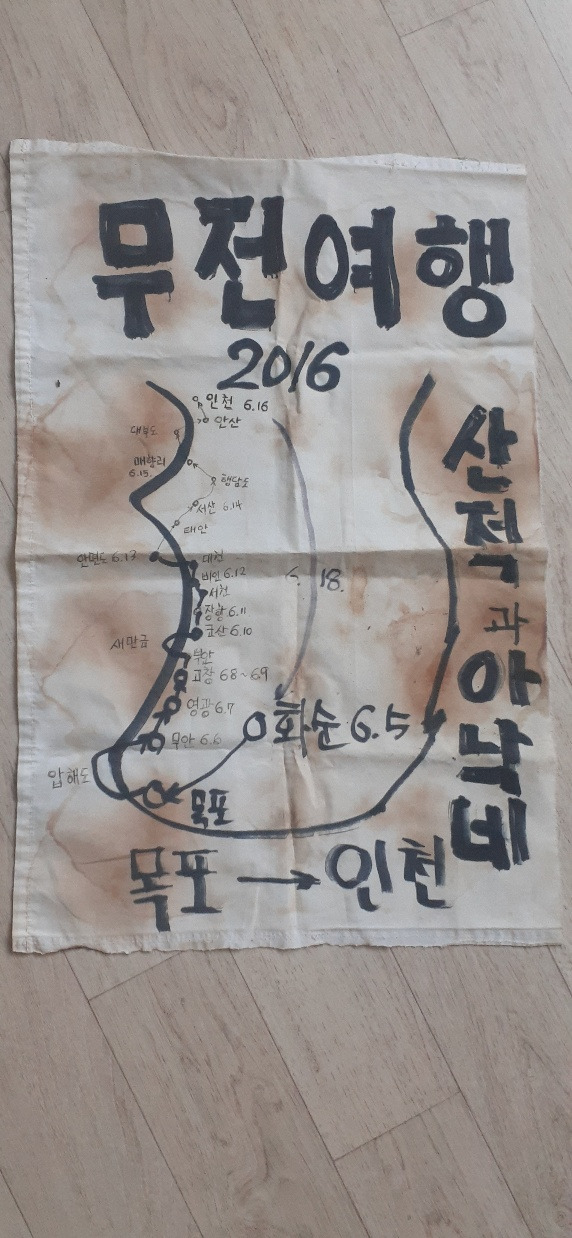 무전여행
2016
인천 6.16
안산
대부도
매향리
6.15.
행담도
서산 6.14
태안
안면도 6.13
대천
비인 6.12
서천
장항 6.11
군산 6.10
새만금
부안
고창 6.8~6.9
영광 6.7
무안 6.6
압해도
목포
화순 6.5
6. 18.
산적과 아낙네
목포 → 인천